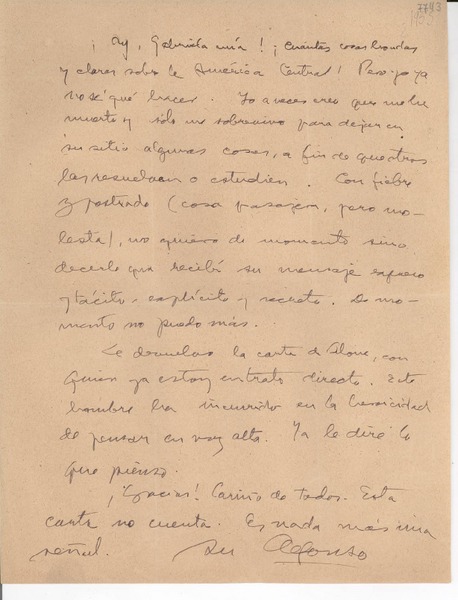 7743
¡Ay, Gabriela mía! ¡Cuántas cosas hondas
y claras sobre la América Central! Pero yo ya
no sé qué hacer. Yo a veces creo que me he
muerto y sólo me sobrevivo para dejar en
su sitio algunas cosas, a fin de que otros
las resuelvan o estudien. Con fiebre
y postrado (cosa pasajera, pero mo-
lesta), no quiero de momento sino
decirle que recibí su mensaje expreso
y tácito, explícito y secreto. De mo-
mento no puedo más.
Le devuelvo la carta de Alone, con
quien ya estoy en trato directo. Este
hombre ha incurrido en la heroicidad
de pensar en voz alta. Ya le diré lo
que pienso.
¡Gracias! Cariño de todos. Esta
carta no cuenta. Es nada más una
señal. Su Alfonso